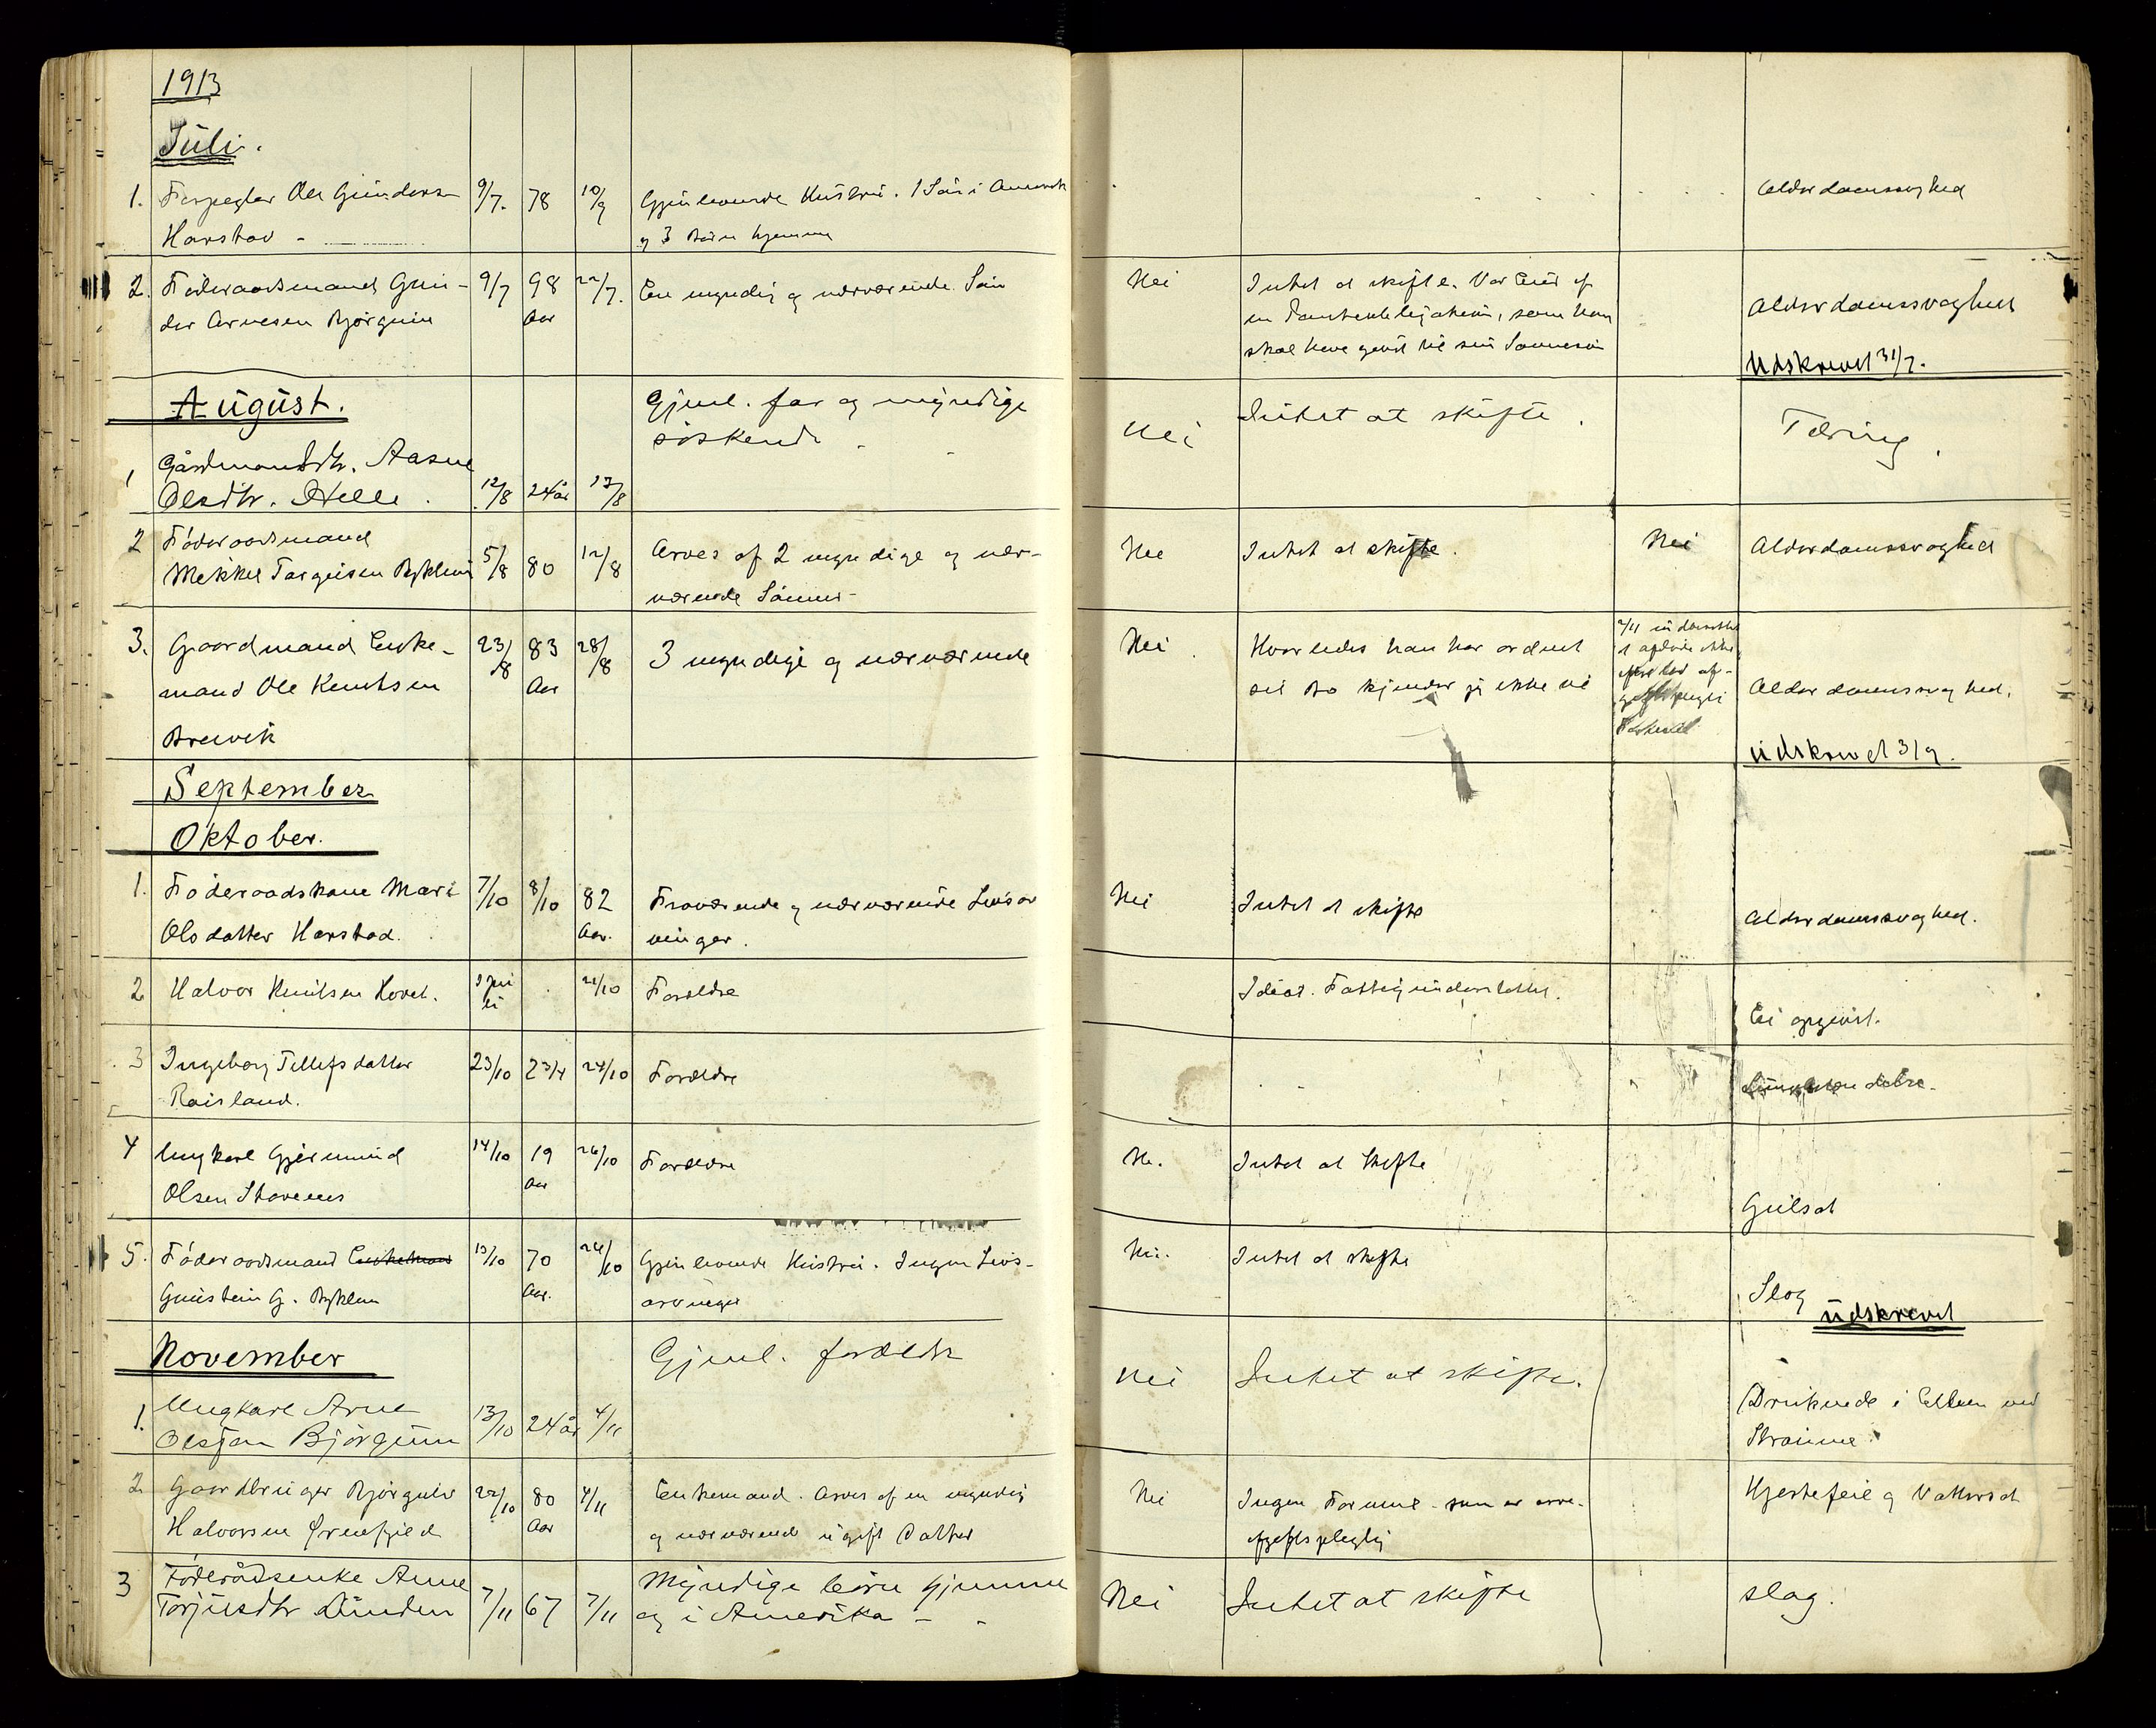 1913
Juli.
1. Ole Gunders 9/7. 78 10/9 Gjenlevende Hustru. 1 Søn i Amerik Alderdomssvaghed
Harstad - og 3 Børn hjemme
2. Føderaadsmand Gun- 9/7 98 22/7. En myndig og nærværende Søn Nei Intet at skifte. Var Eier af Alderdomssvaghed
der Arnesen Bjørgum Aar en , som han
skal have givet til sin Sønnesøn Udskrevet 31/7.
August. Gjenl. far og myndige Nei Intet at skifte. Tæring.
søskende
1 Gårdmandsdtr. Aasne
Olsdtr. Helle. 12/8 24 år 17/8
2 Føderaadsmand Nei Intet at skifte. Nei Alderdomssvaghed
Mikkel Targeisen Bykleim 5/8 80 12/8 Arves af 2 myndige og nær-
værende Sønner
3. Gaardmand Enke- 23/8 83 28/8 3 myndige og nærværende Nei Hvorledes han har ordnet
mand Ole Knutsen Aar sit Bo kjender jeg ikke til Alderdomssvaghed.
Breivik udskrevet 3/9.
September
Oktober.
1. Føderaadskone Mari 7/10 8/10 82 Fraværende og nærværende Livsar Nei Intet at skifte Alderdomssvaghed.
Olsdatter Harstad. Aar. vinger.
2 Halvor Knutsen Hovet. 21/10 Forældre Idiot. Fattigunderstøttet. Ei opgivet.
3 Ingeborg Tellefsdatter 23/10 2 3/4 24/10 Forældre
Roisland.
4 Ungkarl Gjermund 14/10 19 26/10 Forældre Ne. Intet at skifte
Olsen Stavenes Aar Gulsot
5. Føderaadsmand Enkemand 15/10 70 26/10 Gjenlevende Hustru. Ingen Livs- Nei. Intet at skifte
Gunstein G. Byklum Aar. arvinger Slag
udskrevet
November Gjenl. forældre Nei Intet at skifte.
1. Ungkarl Arne Druknede i Elven ved
Olsføn Bjørgum 13/10 24 år 4/11 Straume
2 Gaardbruger Bjørgulv 22/10 80 4/11 Enkemand. Arves af en myndig Nei Ingen Formue som er arve- Hjertefeil og Vattersot
Halvorsen Ørnefjeld Aar og nærværende ugift Datter afgiftspligtig
3 Føderådsenke Anne 7/11 67 7/11 Myndige børn hjemme Nei Intet at skifte slag.
Torjusdtr og i Amerika -